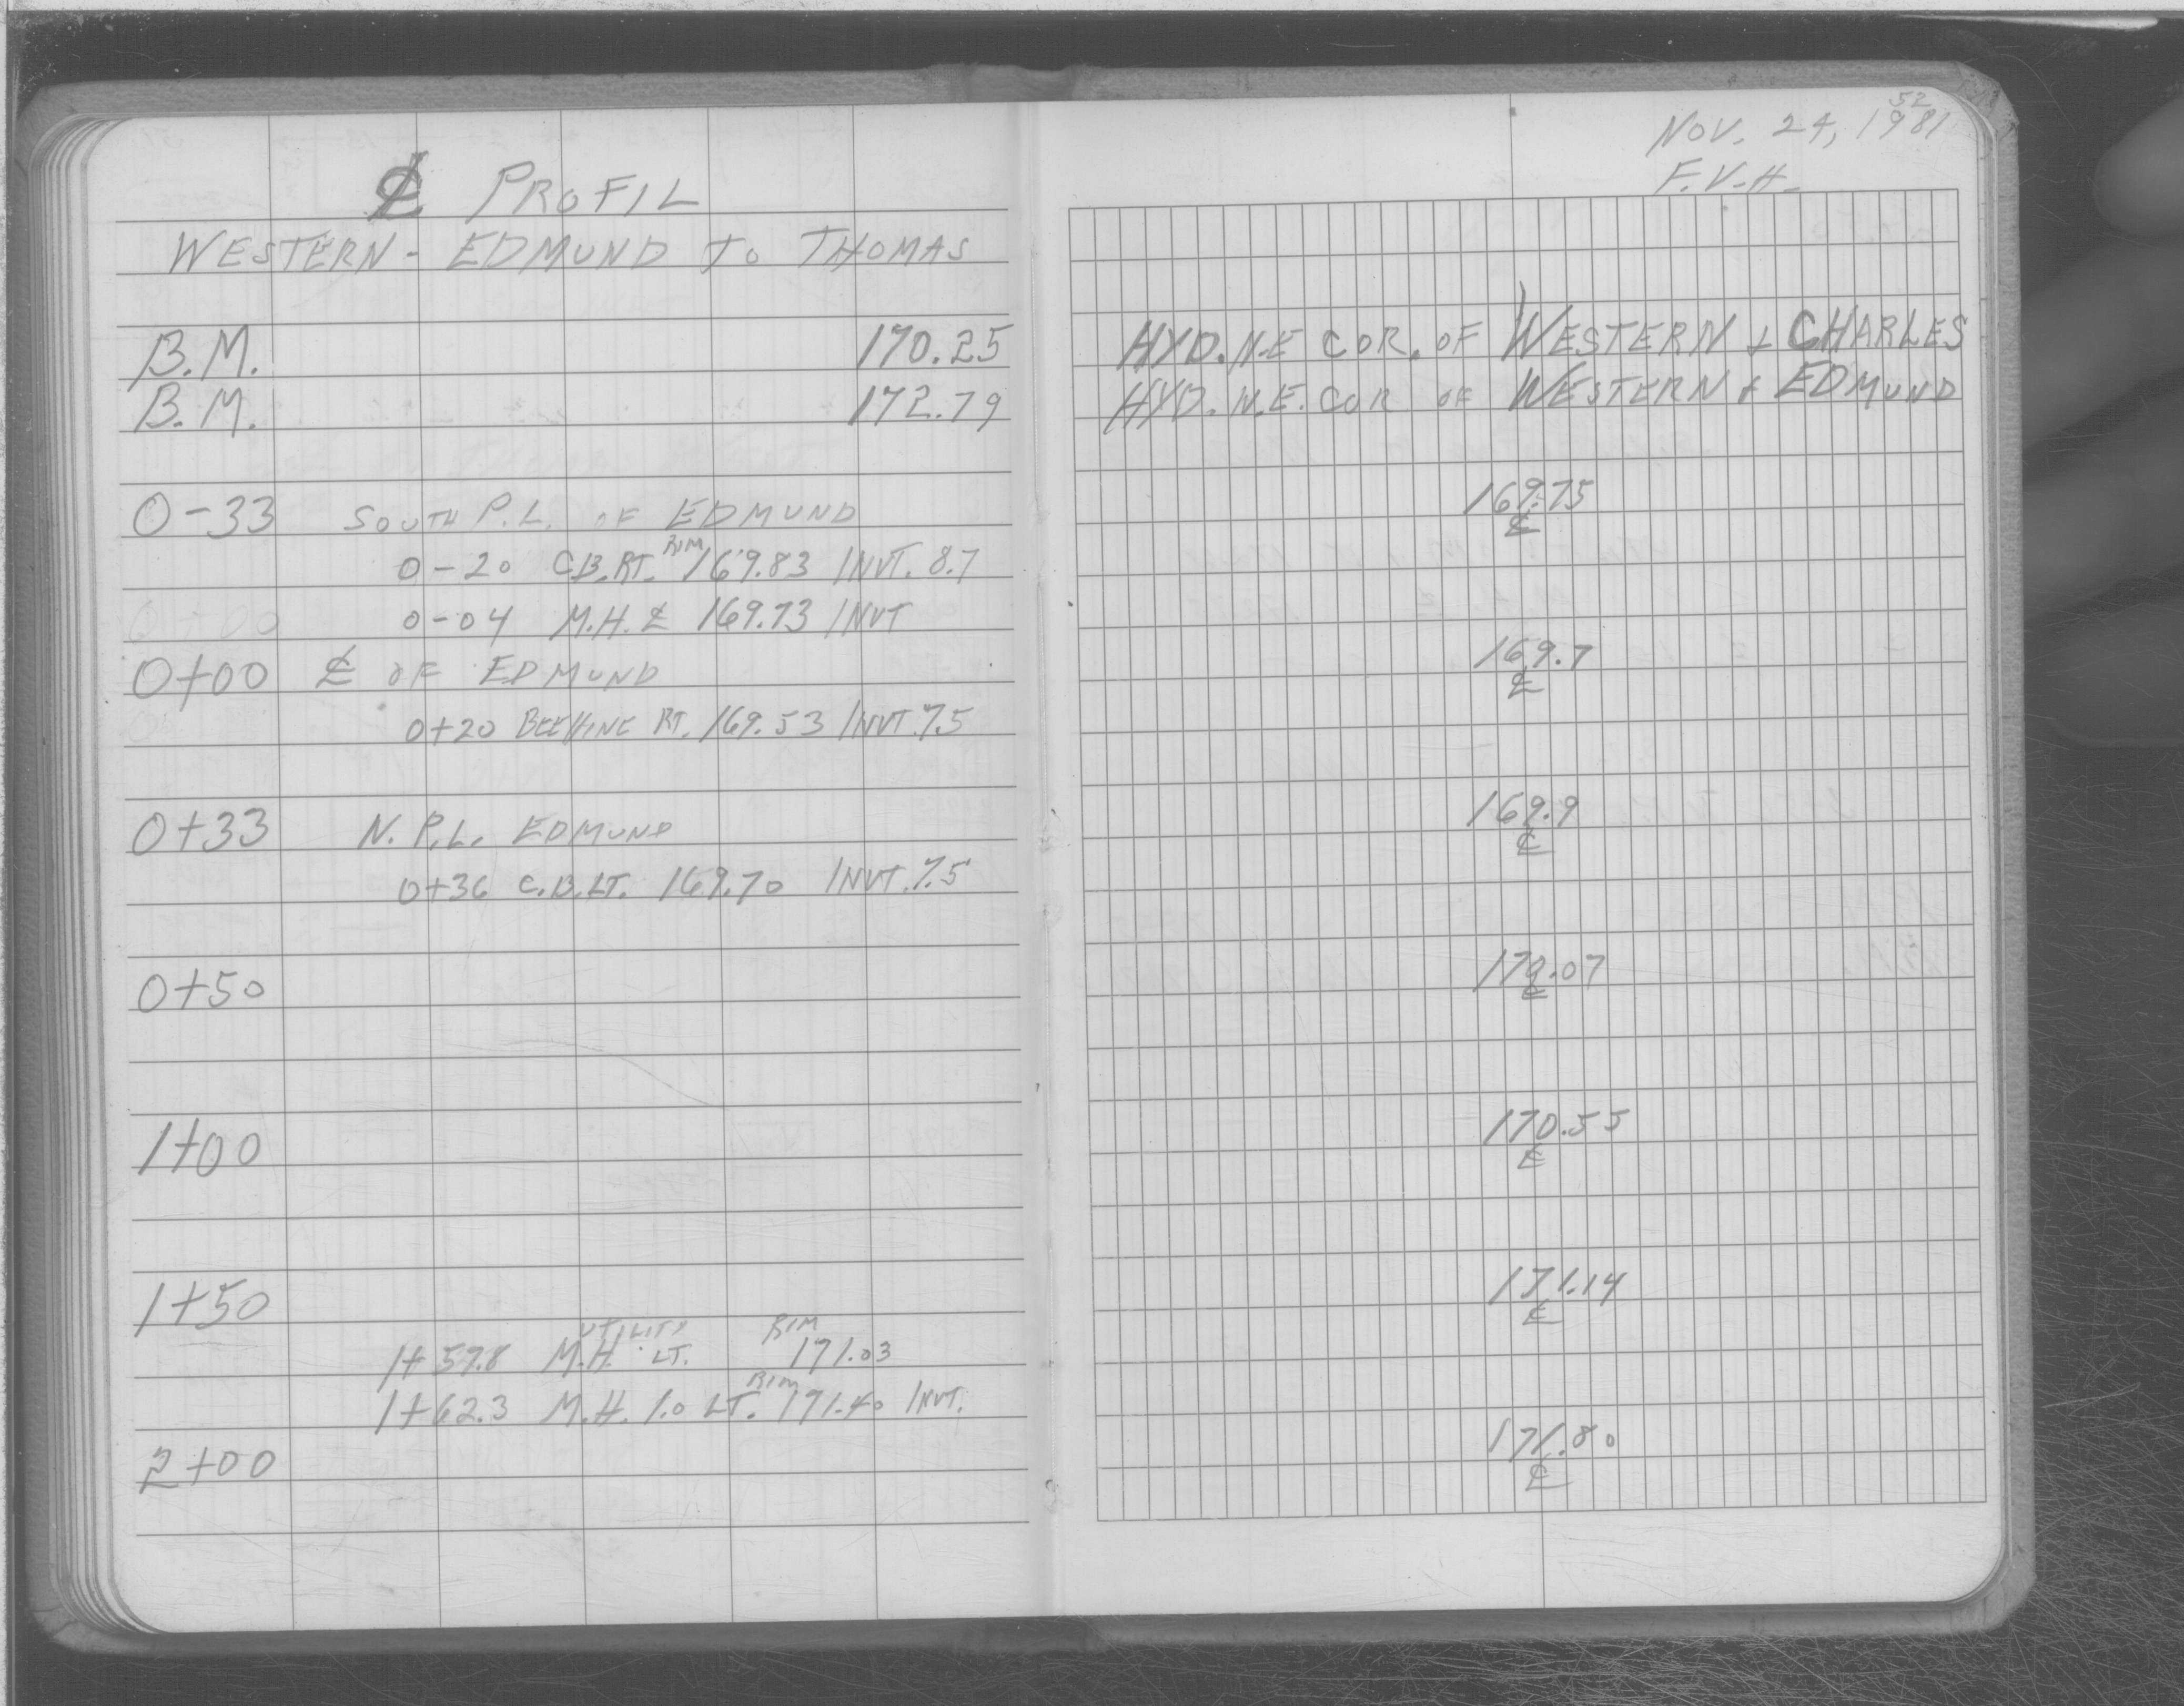 52
NOV. 24, 1981
F.V.H.
℄ PROFIL
WESTERN - EDMUND TO THOMAS
B.M. 170.25 HYD. N.E COR. OF WESTERN & CHARLES
B.M. 172.79 HYD. N.E. COR OF WESTERN & EDMUND
0-33 SOUTH P.L. OF EDMUND 169.75
℄
RIM
0-20 C.B. RT. 169.83 INVT. 8.7
0-04 M.H. ℄ 169.73 INVT
0+00
0+00 ℄ OF EDMUND 169.7
℄
0+20 BEEHIVE RT. 169.53 INVT. 7.5
0+33 N. P.L. EDMUND 169.9
℄
0+36 C.B. LT. 169.70 INVT. 7.5
0+50 170.07
℄
1+00 170.55
℄
1+50 171.14
℄
UTILITY RIM
1+59.8 M.H. LT. 171.03
RIM
1+62.3 M.H. 1.0 LT. 171.40 INVT.
2+00 171.80
℄